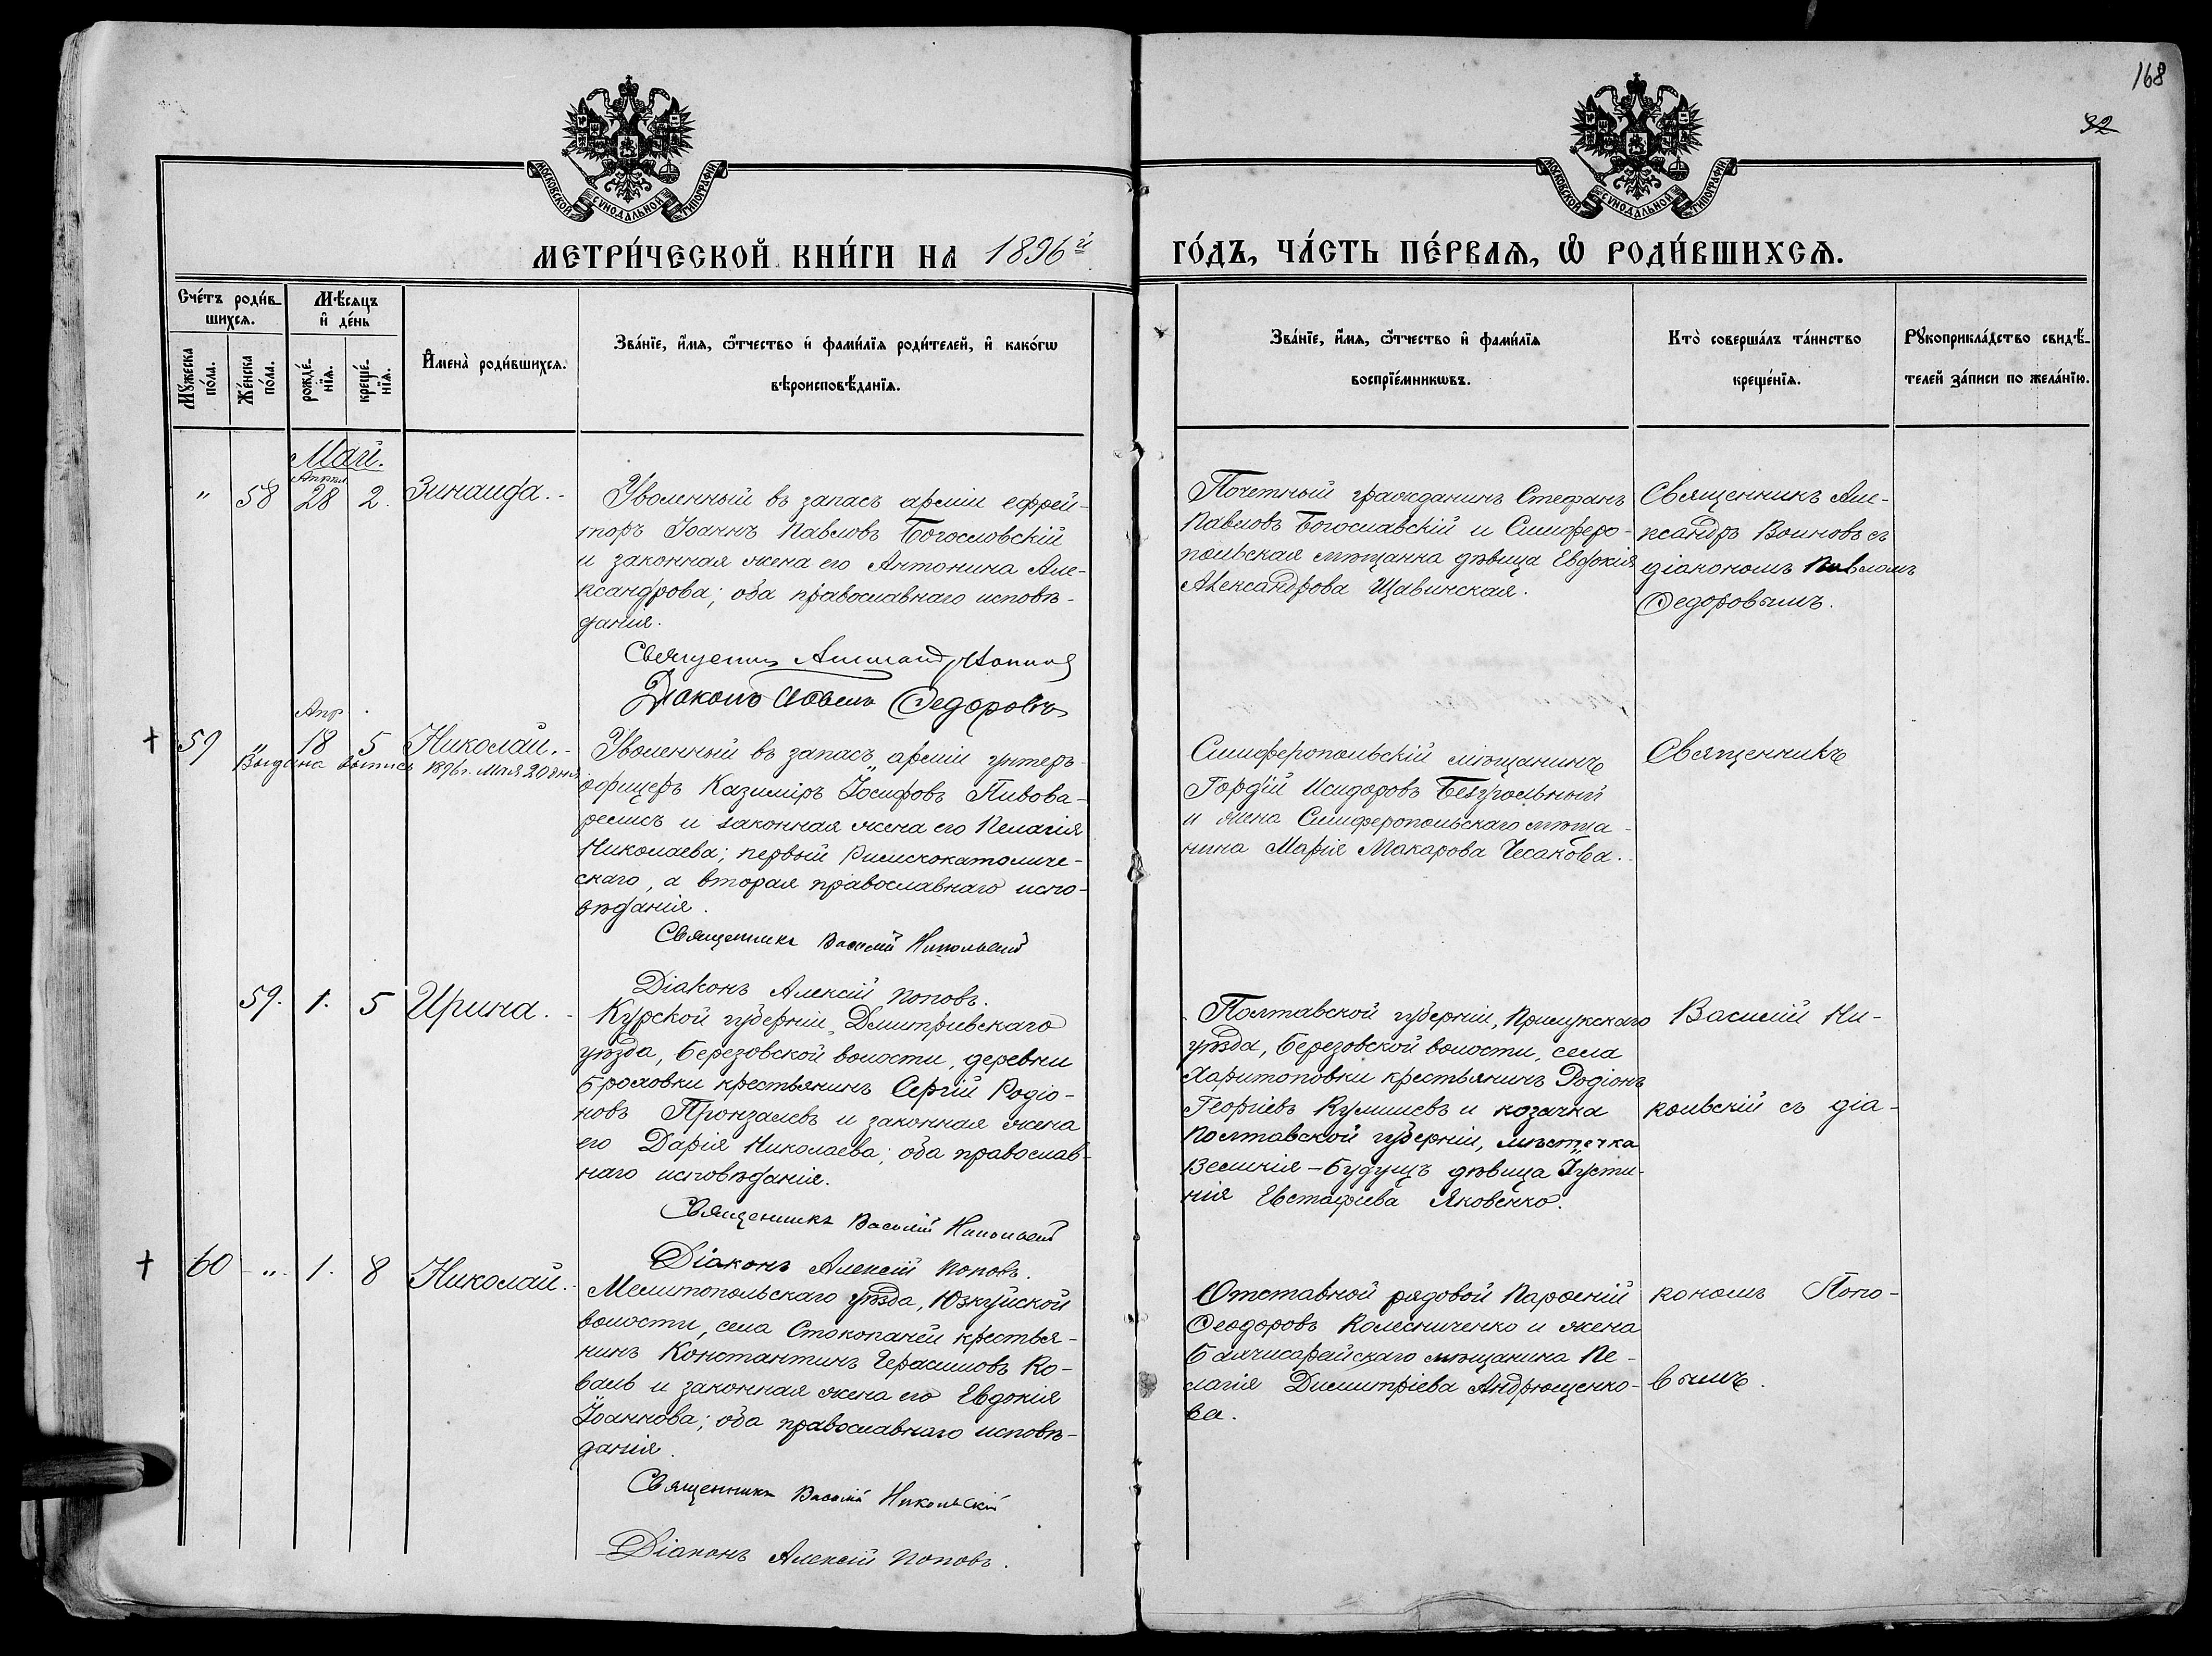 168
32
МОСКОВСКОЙ СѴНОДАЛЬНОЙ ТИПОГРАФІИ
МОСКОВСКОЙ СѴНОДАЛЬНОЙ ТИПОГРАФІИ
МЕТРИ́ЧЕСКОЙ КНИ́ГИ НА 1896й
ГО́ДЪ, ЧА́СТЬ ПЕ́РВАѦ, Ѽ РОДИ́ВШИХСѦ.
Сче́тъ роди́в-
шихсѧ.
Мѣ́сѧцъ
и҆ де́нь
Мꙋжеска
по́ла.
Же́нска
по́ла.
рожде́-
нїѧ.
креще́-
нїѧ.
И҆мена̀ роди́вшихсѧ.
Зва́нїе, и҆́мѧ, ѻ҆́тчество и҆ фами́лїѧ роди́телей, и҆ како́гѡ
вѣроисповѣ́данїѧ.
Зва́нїе, и҆́мѧ, ѻ҆́тчество и҆ фами́лїѧ
воспрїе́мникѡвъ.
Кто̀ соверша́лъ та́инство
креще́нїѧ.
Рꙋкоприкла́дство свидѣ́-
телей за́писи по жела́нїю.
Май.
Апрѣл
" 58 28 2. Зинаида.
Уволенный въ запасъ арміи ефрей-
торъ Іоаннъ Павловъ Богословскій
и законная жена его Антонина Але-
ксандрова; оба православнаго исповѣ-
данія.
Священникъ Александръ Воиновъ
Діаконъ Павелъ Федоровъ
Почетный гражданинъ Стефанъ
Павловъ Богославскій и Симферо-
польская мѣщанка дѣвица Евдокія
Александрова Щавинская.
Священникъ Але-
ксандръ Воиновъ съ
діакономъ Павломъ
Федоровымъ.
Апр.
+ 59 " 18 5 Николай.
Выдана выпись 1896 г. Мая 20 дня
Уволенный въ запасъ арміи унтеръ-
офицеръ Казиміръ Іосифовъ Пивова-
релисъ и законная жена его Пелагія
Николаева; первый Римскокатоличе-
скаго, а вторая православнаго испо-
вѣданія.
Священникъ Василій Никольскій
Діаконъ Алексій Поповъ.
Симферопольскій мѣщанинъ
Гордій Исидоровъ Безугольный
и жена Симферопольскаго мѣща-
нина Марія Макарова Чесакова.
Священникъ
59. 1. 5 Ирина.
Курской губерніи, Дмитріевскаго
уѣзда, Березовской волости, деревни
Броховки крестьянинъ Сергій Родіо-
новъ Пронзалевъ и законная жена
его Дарія Николаева; оба православ-
наго исповѣданія.
Священникъ Василій Никольскій
Діаконъ Алексій Поповъ.
Полтавской губерніи, Прилукскаго
уѣзда, Березовской волости, села
Харитоновки крестьянинъ Родіонъ
Георгіевъ Кулишевъ и козачка
Полтавской губерніи, мѣстечка
Великія-Будущъ дѣвица Іусти-
нія Евстафіева Яковенко.
Василій Ни-
кольскій съ діа-
+ 60 " 1. 8 Николай.
Мелитопольскаго уѣзда, Юзкуйской
волости, села Стокопаней крестья-
нинъ Константинъ Герасимовъ Ко-
валь и законная жена его Евдокія
Іоаннова; оба православнаго исповѣ-
данія.
Священникъ Василій Никольскій
Діаконъ Алексій Поповъ.
Отставной рядовой Парѳеній
Ѳеодоровъ Колесниченко и жена
Бахчисарайскаго мѣщанина Пе-
лагія Димитріева Андрющенко-
ва.
кономъ Попо-
вымъ.